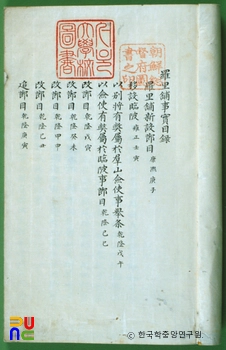 朝鮮總
督府圖
書之印
大學校
圖書
羅里舖事實目錄
羅里舖新設節目 康熙庚子
移設臨陂 雍正壬寅
以別將有弊屬於羣山僉使事 乾隆戊午
以僉使有弊屬於臨陂事節目 乾隆己巳
改節目 乾隆戊寅
改節目 乾隆癸未
改節目 乾隆甲申
改節目 乾隆己丑
追節目 乾隆庚寅
© 한국학중앙연구원